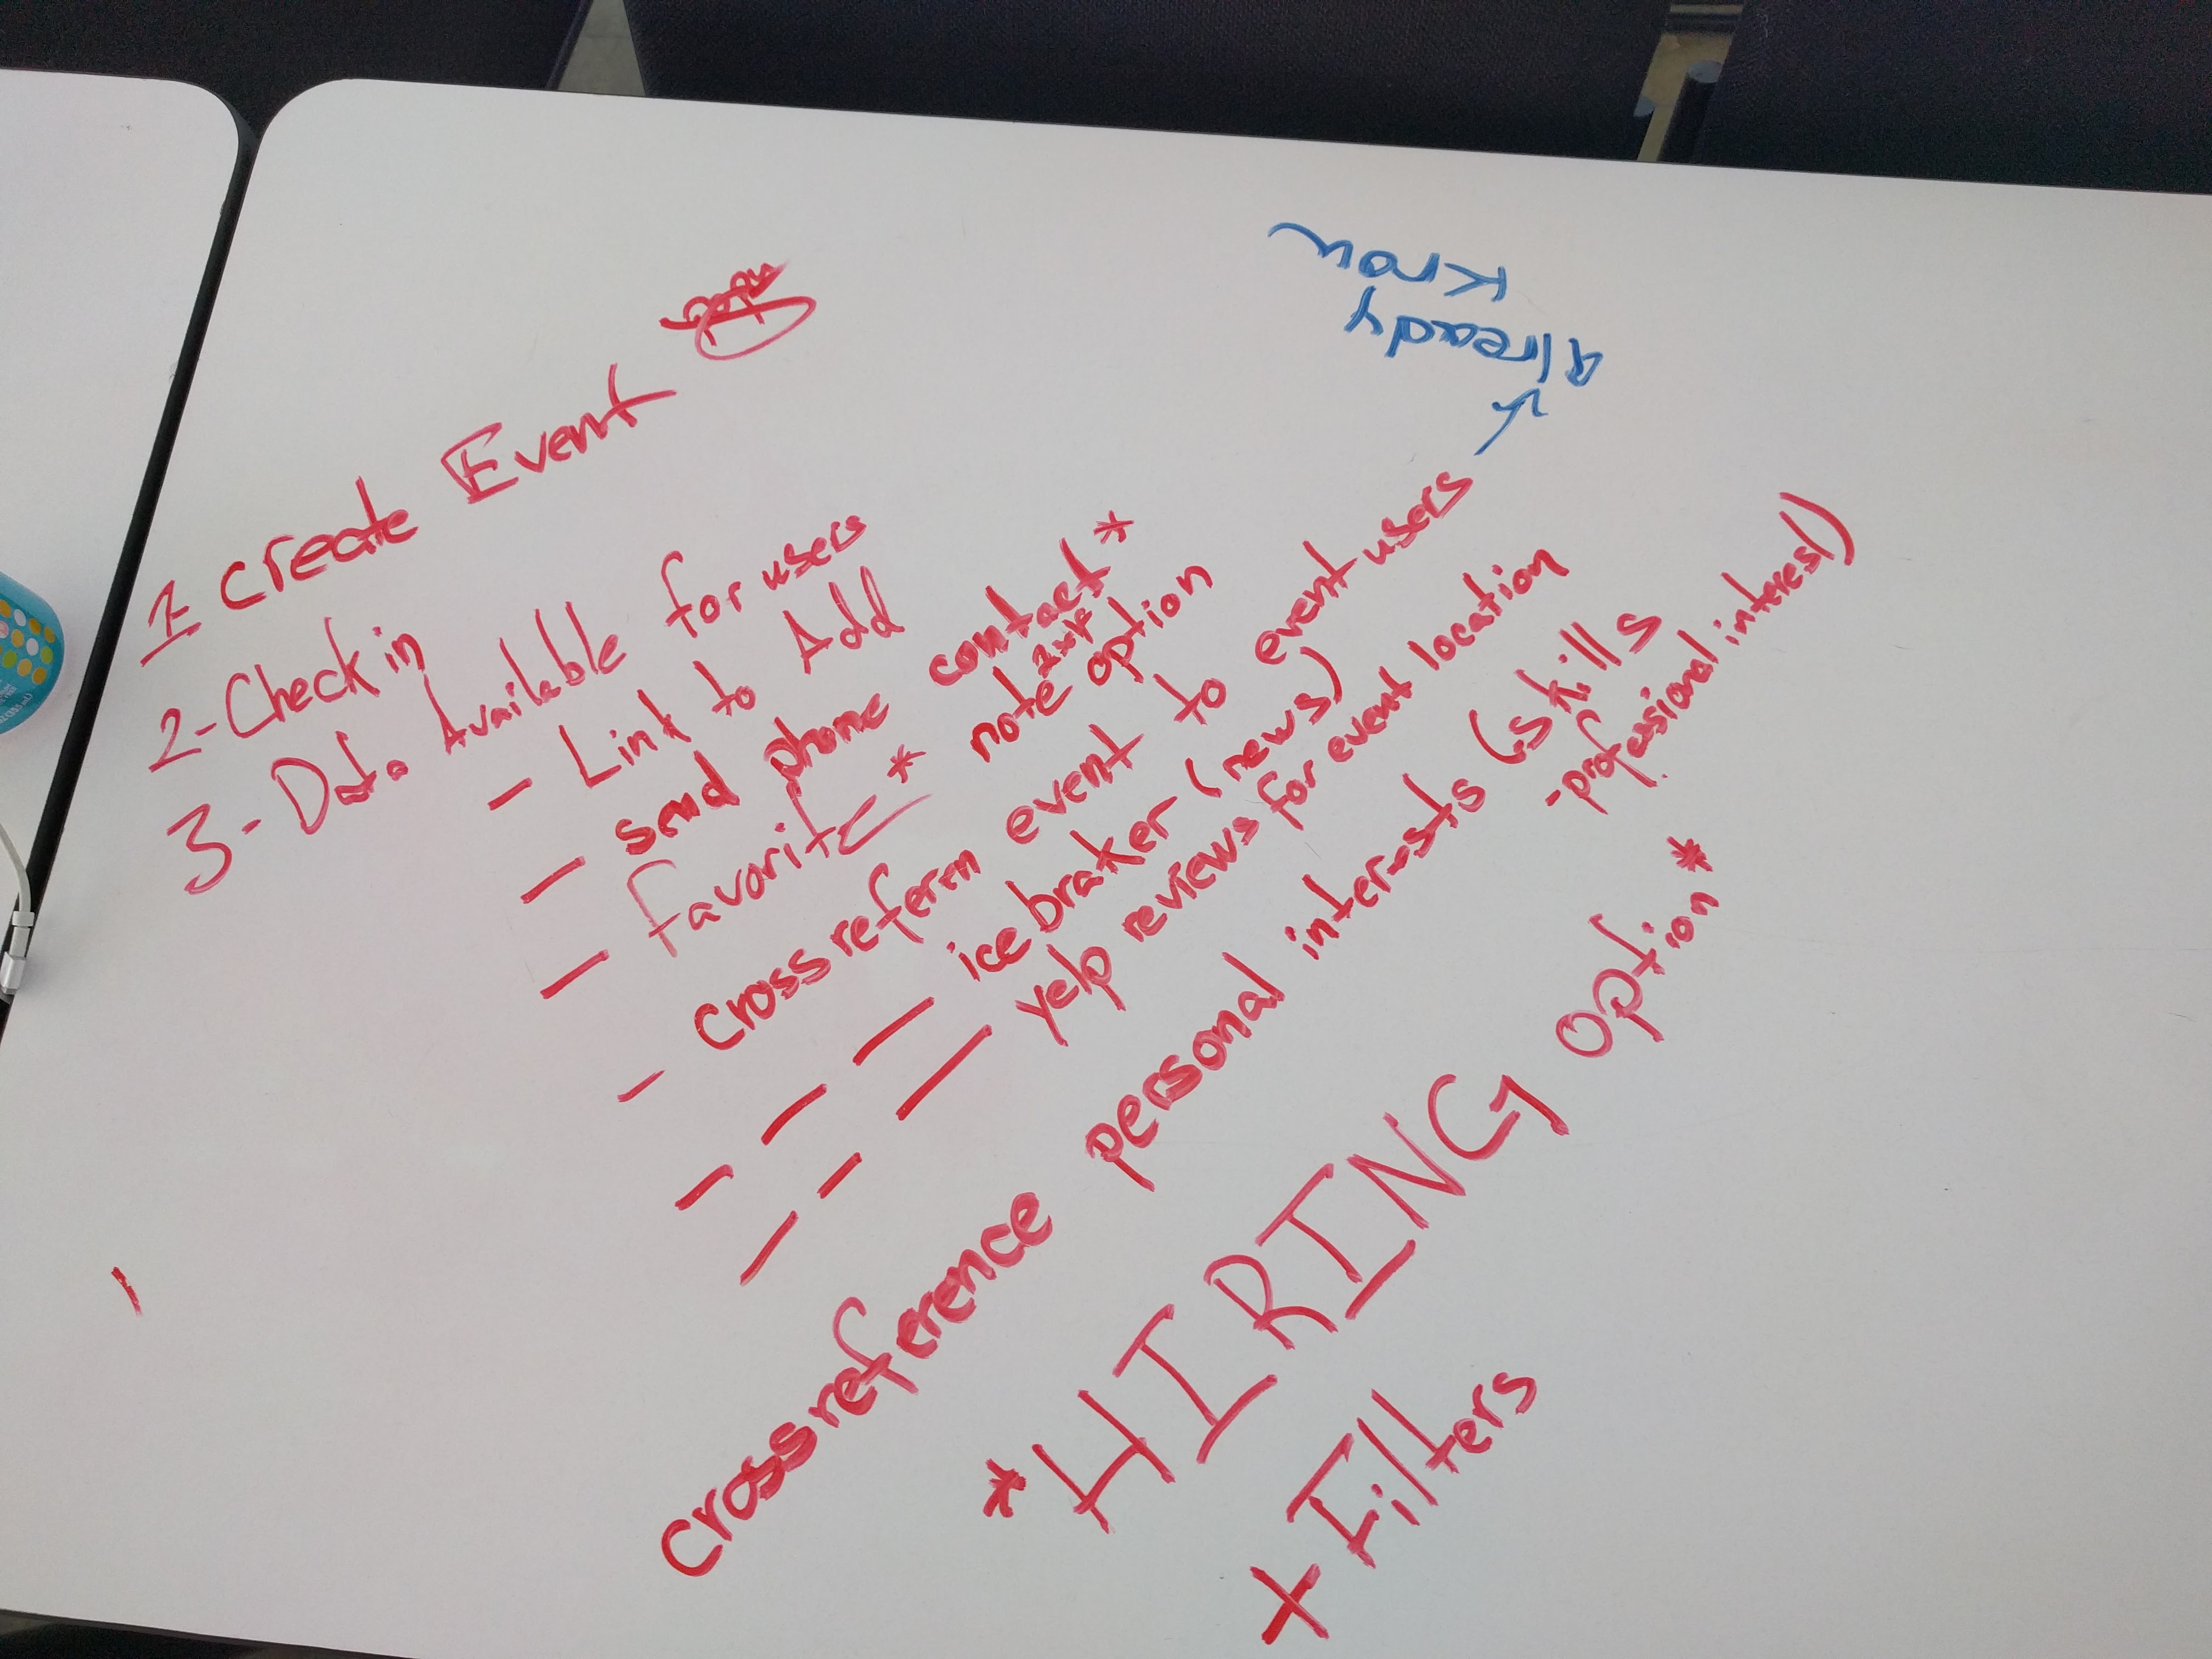 1 Create Event
2-Check in
3- Data Available for users
- Link to Add
- Send phone contact *
- favorite * note option
- Cross referen event to event users
already
know
- ice braker (news)
- yelp reviews for event location
crossreference personal interests (skills
- professional interest)
* HIRING option *
+ Filters